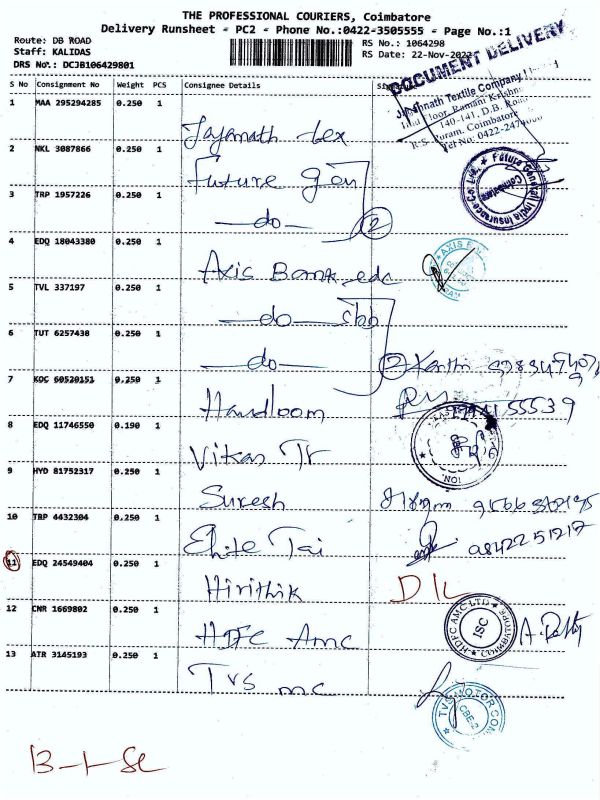 THE PROFESSIONAL COURIERS, Coimbatore
Delivery Runsheet - PC2 - Phone No.:0422-3505555 - Page No.:1
Route: DB ROAD
Staff: KALIDAS
DRS No.: DCJB106429801
RS No.: 1064298
RS Date: 22-Nov-2022
DOCUMENT DELIVERY
S No Consignment No Weight PCS Consignee Details
1 MAA 295294285 0.250 1 Jayanath tex
Jagannath Textile Company
140-141, D.B. Road
R.S. Puram, Coimbatore
2 NKL 3087866 0.250 1 Future Gen
Future Generali India Insurance Co. Ltd. Coimbatore
3 TRP 1957226 0.250 1 do 2
4 EDQ 18043380 0.250 1 Axis Bank edc
AXIS
5 TVL 337197 0.250 1 do
6 TUT 6257438 0.250 1 do 2
7 KOC 60520151 0.250 1 Handloom
8 EDQ 11746550 0.190 1 Vikas Tr
9 HYD 81752317 0.250 1 Suresh
10 TRP 4432304 0.250 1 Elite Tai 9842251217
11 EDQ 24549404 0.250 1 Hirithik DIL
12 CNR 1669802 0.250 1 HDFC Amc
HDFC AMC LTD ISC COIMBATORE
13 ATR 3145193 0.250 1 Tvs mc
TVS MOTOR COM CBE-2